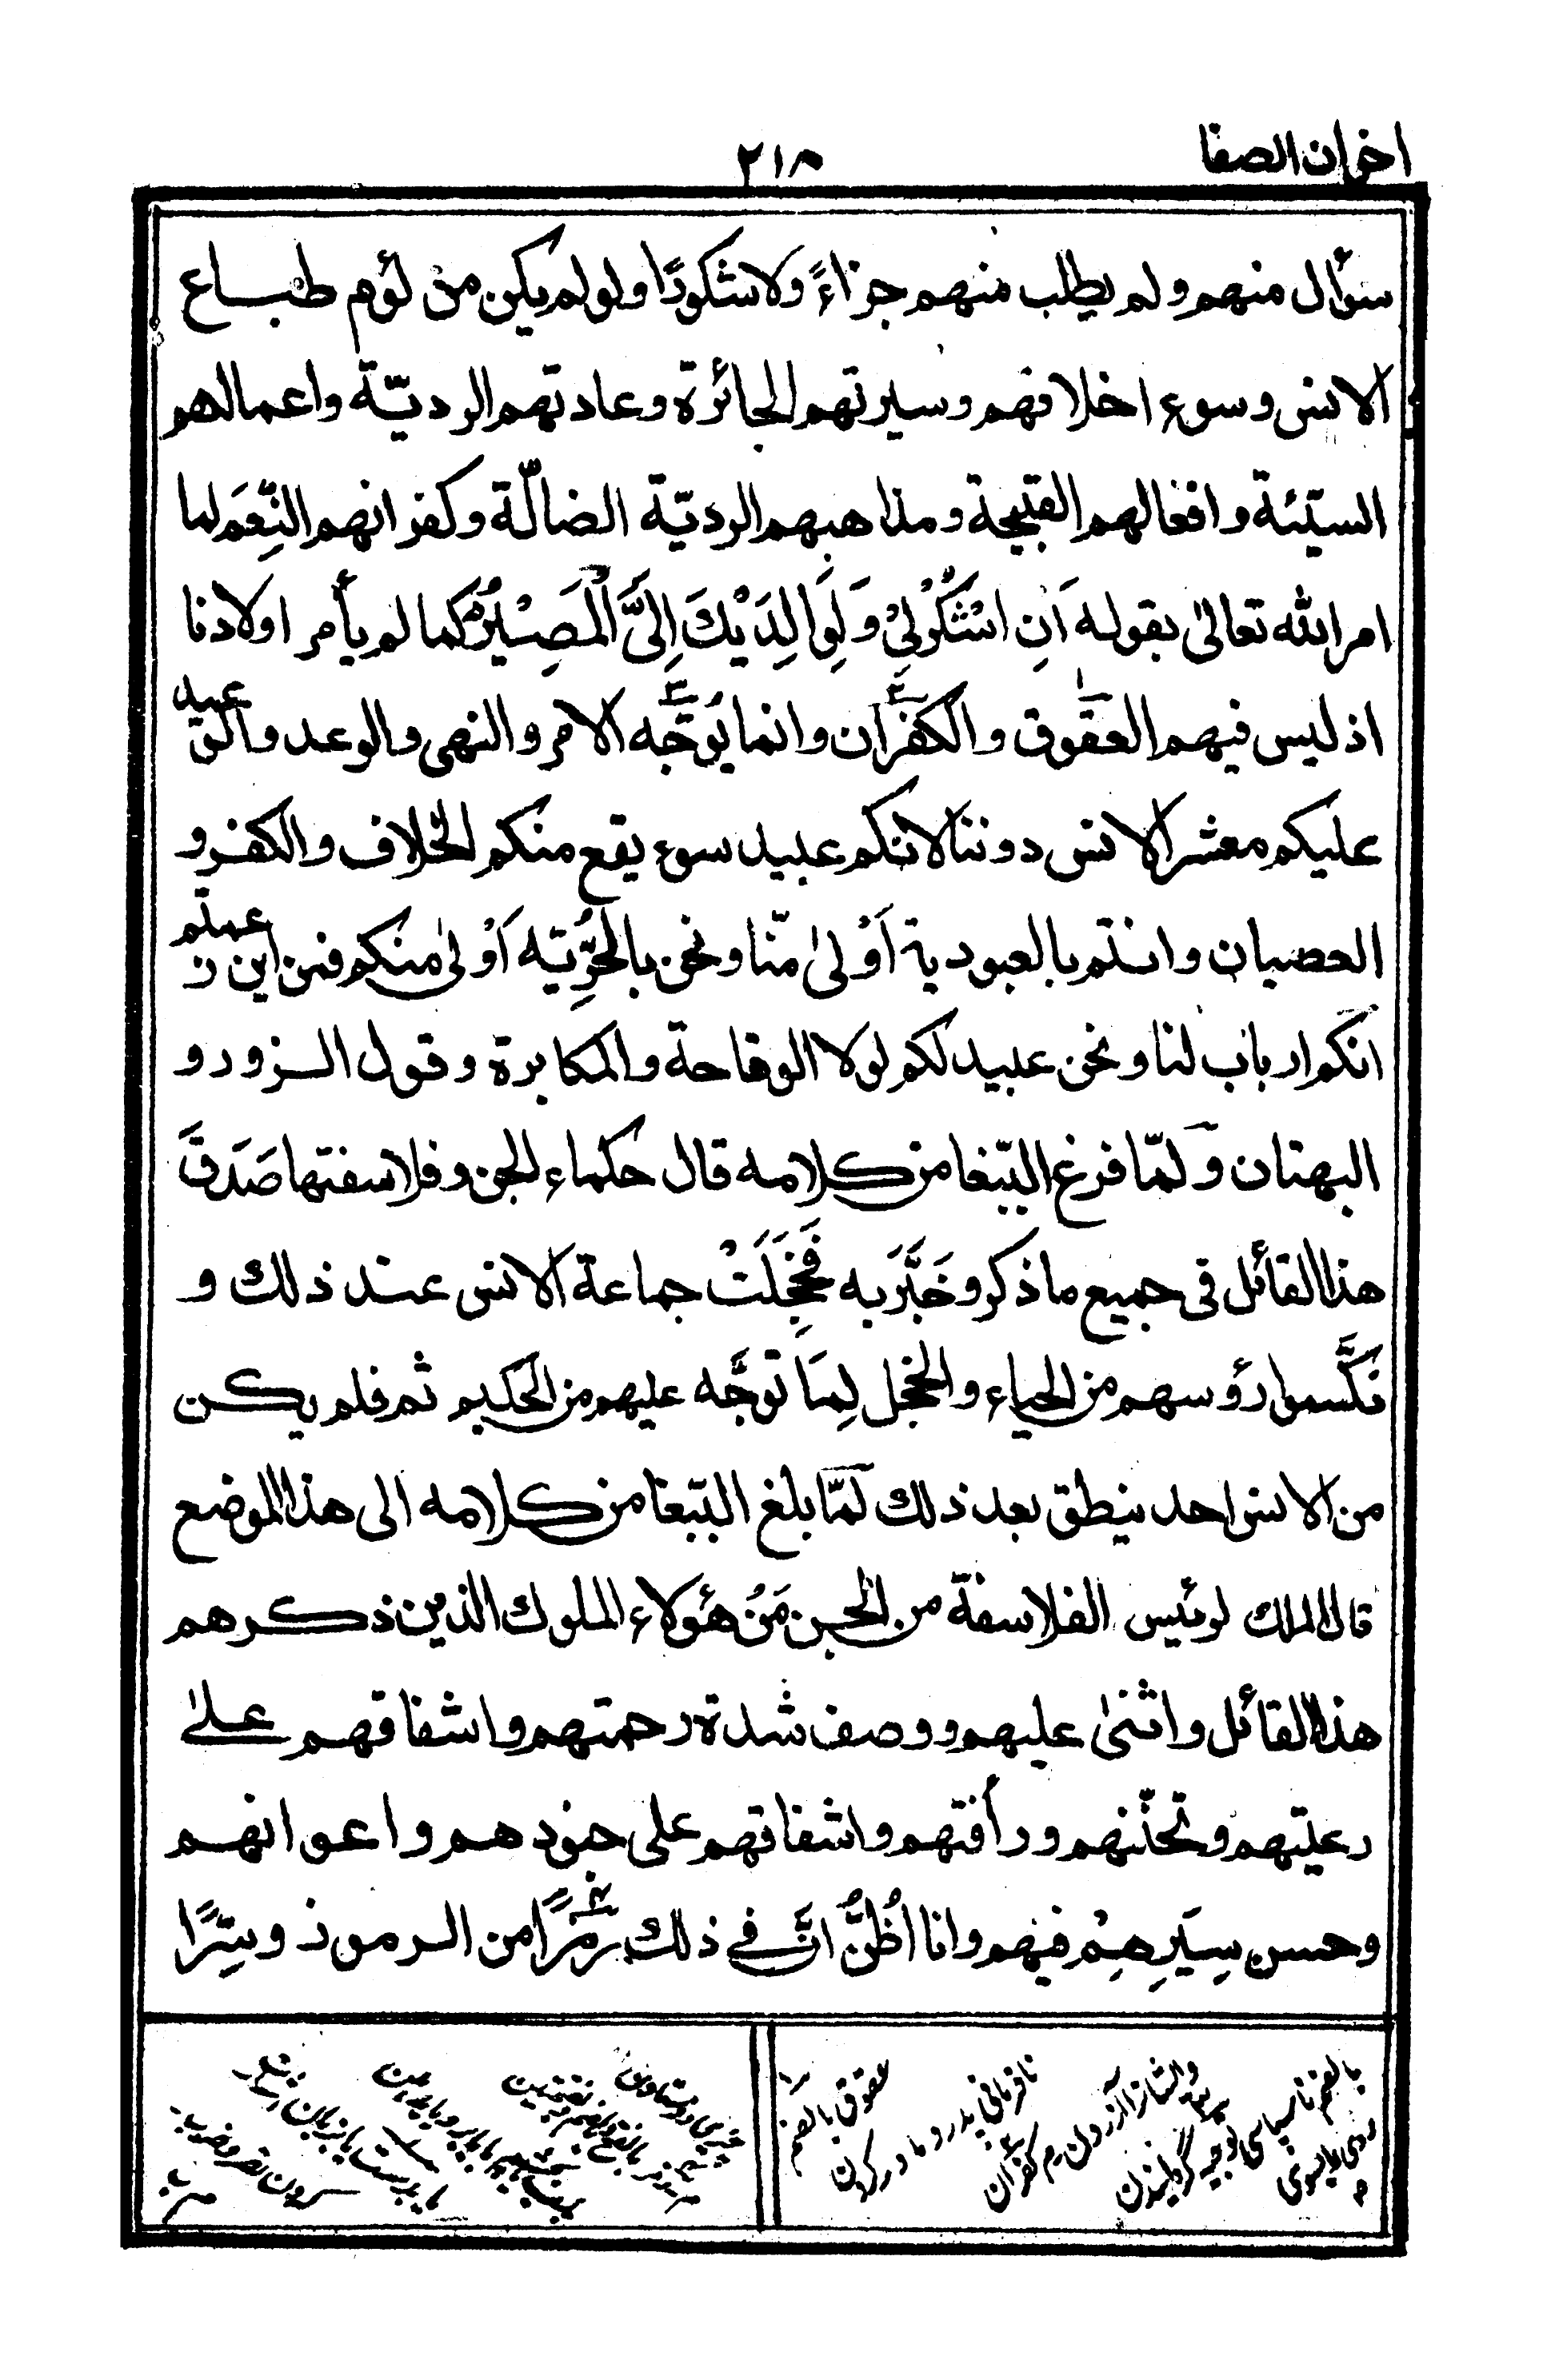 اخوان الصفا
٢١٨
سؤال منهم ولم يطلب منهم جزاءً ولا شكورًا ولو لم يكن من لؤم طبــاع
الانس وسوء اخلاقهم وسيرتهم الجائرة وعادتهم الرديّة واعمالهم
السيّئة وافعالهم القبيحة ومذاهبهم الرديّة الضالّة وكفرانهم النِّعَم لما
امر الله تعالىٰ بقوله اَنِ اشْكُرْلِيْ وَلِوَالِدَيْكَ اِلَيَّ الْمَصِيْرُ كما لم يأمر اولادنا
اذ ليس فيهم العقوق والكفران وانما يوجَّه الامر والنهى والوعد والوعيد
عليكم معشر الانس دوننا لانكم عبيد سوء يقع منكم الخلاف والكفر و
العصيان وانتم بالعبودية اَوْلىٰ منّا ونحن بالحُرِّيّه اَوْلىٰ منكم فمن اين زعمتم
انكم ارباب لنا ونحن عبيد لكم لولا الوقاحة والمكابرة وقول الــزور و
البهتان ولمّا فرغ الببّغا من كلامه قال حكماء الجن وفلاسفتها صَدَقَ
هذا القائل فى جميع ما ذكر وخَبَّرَ به فَخَجِلَتْ جماعة الانس عند ذلك و
نكَّسوا رؤسهم من الحياء والخجل لِمَا توجَّه عليهم من الحكيم ثم فلم يكن
من الانس احد ينطق بعد ذلك لمّا بلغ الببّغا من كلامه الى هذا الموضع
قال الملك لرئيس الفلاسفة من الجن مَنْ هٰؤلاء الملوك الذين ذكرهم
هذا القائل واثنىٰ عليهم ووصف شدة رحمتهم واشفاقهم علىٰ
رعيتهم وتحنّنهم ورأفتهم واشفاقهم على جنودهم واعوانهم
وحسن سِيَرِهِمْ فيهم وانا اظُنُّ انَّ فى ذلك رَمْزًا من الرموز وسِرًّا
عقوق بالضم
نافرمانى پدر و مادر كردن